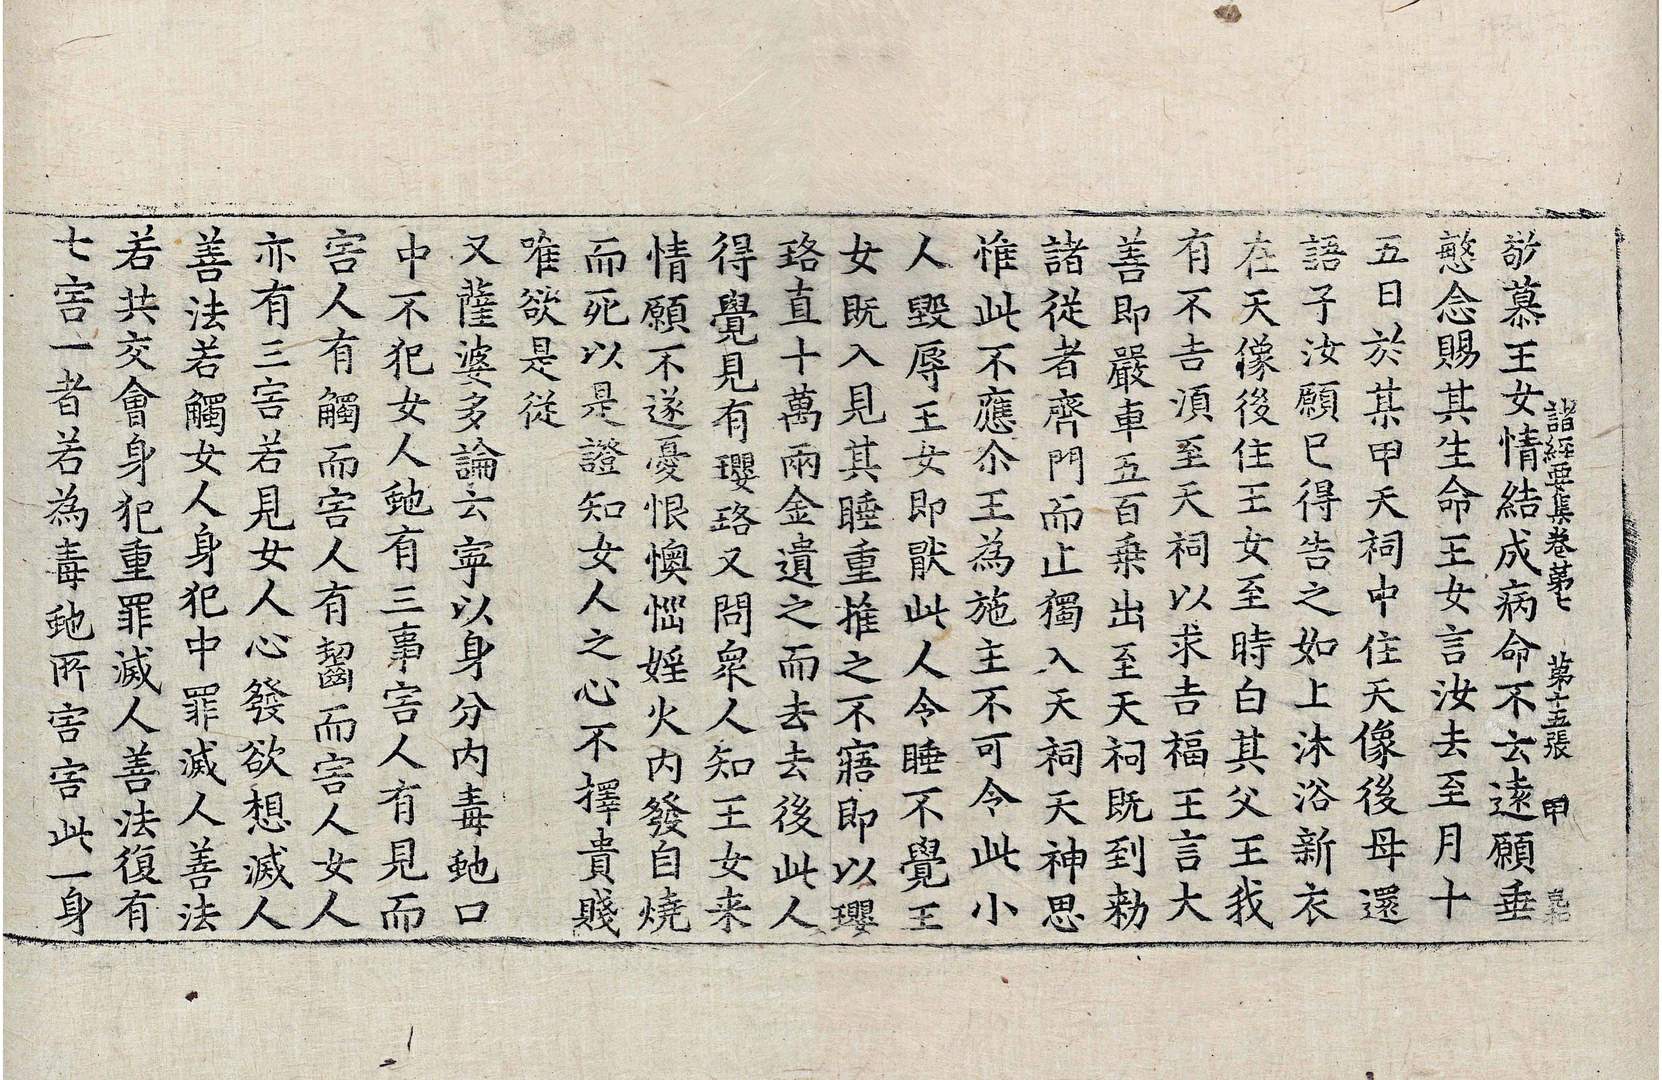 諸經要集卷苐七 苐十五張 甲
敬慕王女情結成病命不云遠願垂
愍念賜其生命王女言汝去至月十
五日於某甲天祠中住天像後母還
語子汝願已得告之如上沐浴新衣
在天像後住王女至時白其父王我
有不吉湏至天祠以求吉福王言大
善即嚴車五百乗出至天祠既到勑
諸從者齊門而止獨入天祠天神思
惟此不應尒王為施主不可令此小
人毀辱王女即猒此人令睡不覺王
女既入見其睡重推之不寤即以瓔
珞直十萬兩金遺之而去去後此人
得覺見有瓔珞又問衆人知王女来
情願不遂憂恨懊惱婬火內發自燒
而死以是證知女人之心不擇貴賤
唯欲是從
又薩婆多論云寧以身分內毒虵口
中不犯女人虵有三事害人有見而
害人有觸而害人有齧而害人女人
亦有三害若見女人心發欲想滅人
善法若觸女人身犯中罪滅人善法
若共交會身犯重罪滅人善法復有
七害一者若為毒虵所害害此一身